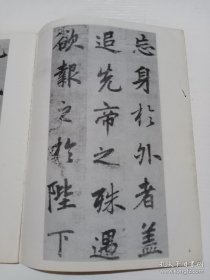 忘身於外者蓋
追先帝之殊遇
欲報之於陛下